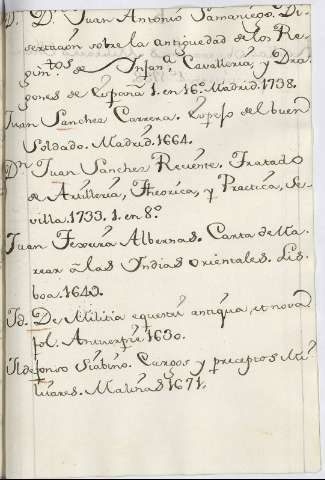 D. Dn. Juan Antonio Samaniego. Di-
sertacion sobre la antiguedad de los Re-
gim.tos de Infan.a Cavalleria, y Dra-
gones de España 1. en 16.º Madrid. 1738.
Juan Sanchez Carrera. Espejo del buen
Soldado. Madrid. 1664.
Dn. Juan Sanchez Reciente. Tratado
de Artilleria, Theorica, y Practica, Se-
villa. 1733. 1. en 8.º
Juan Texeira Albernas. Carta de Ma-
rear a las Indias orientales. Lis-
boa. 1649.
Id. De Militia equestri antiqua, et nova
fol. Antuerpiæ 1630.
Ildefonso Scabino. Cargos y preceptos Mi-
litares. Malinas 1671.